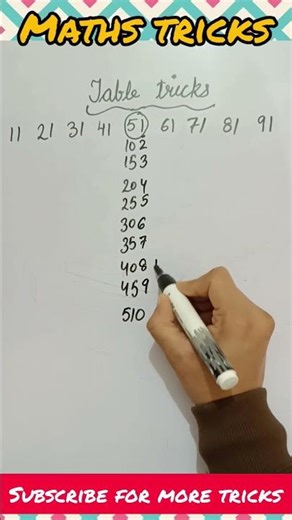 MATHS TRICKS
Table tricks
11 21 31 41 51 61 71 81 91
102
153
204
255
306
357
408
459
510
SUBSCRIBE FOR MORE TRICKS